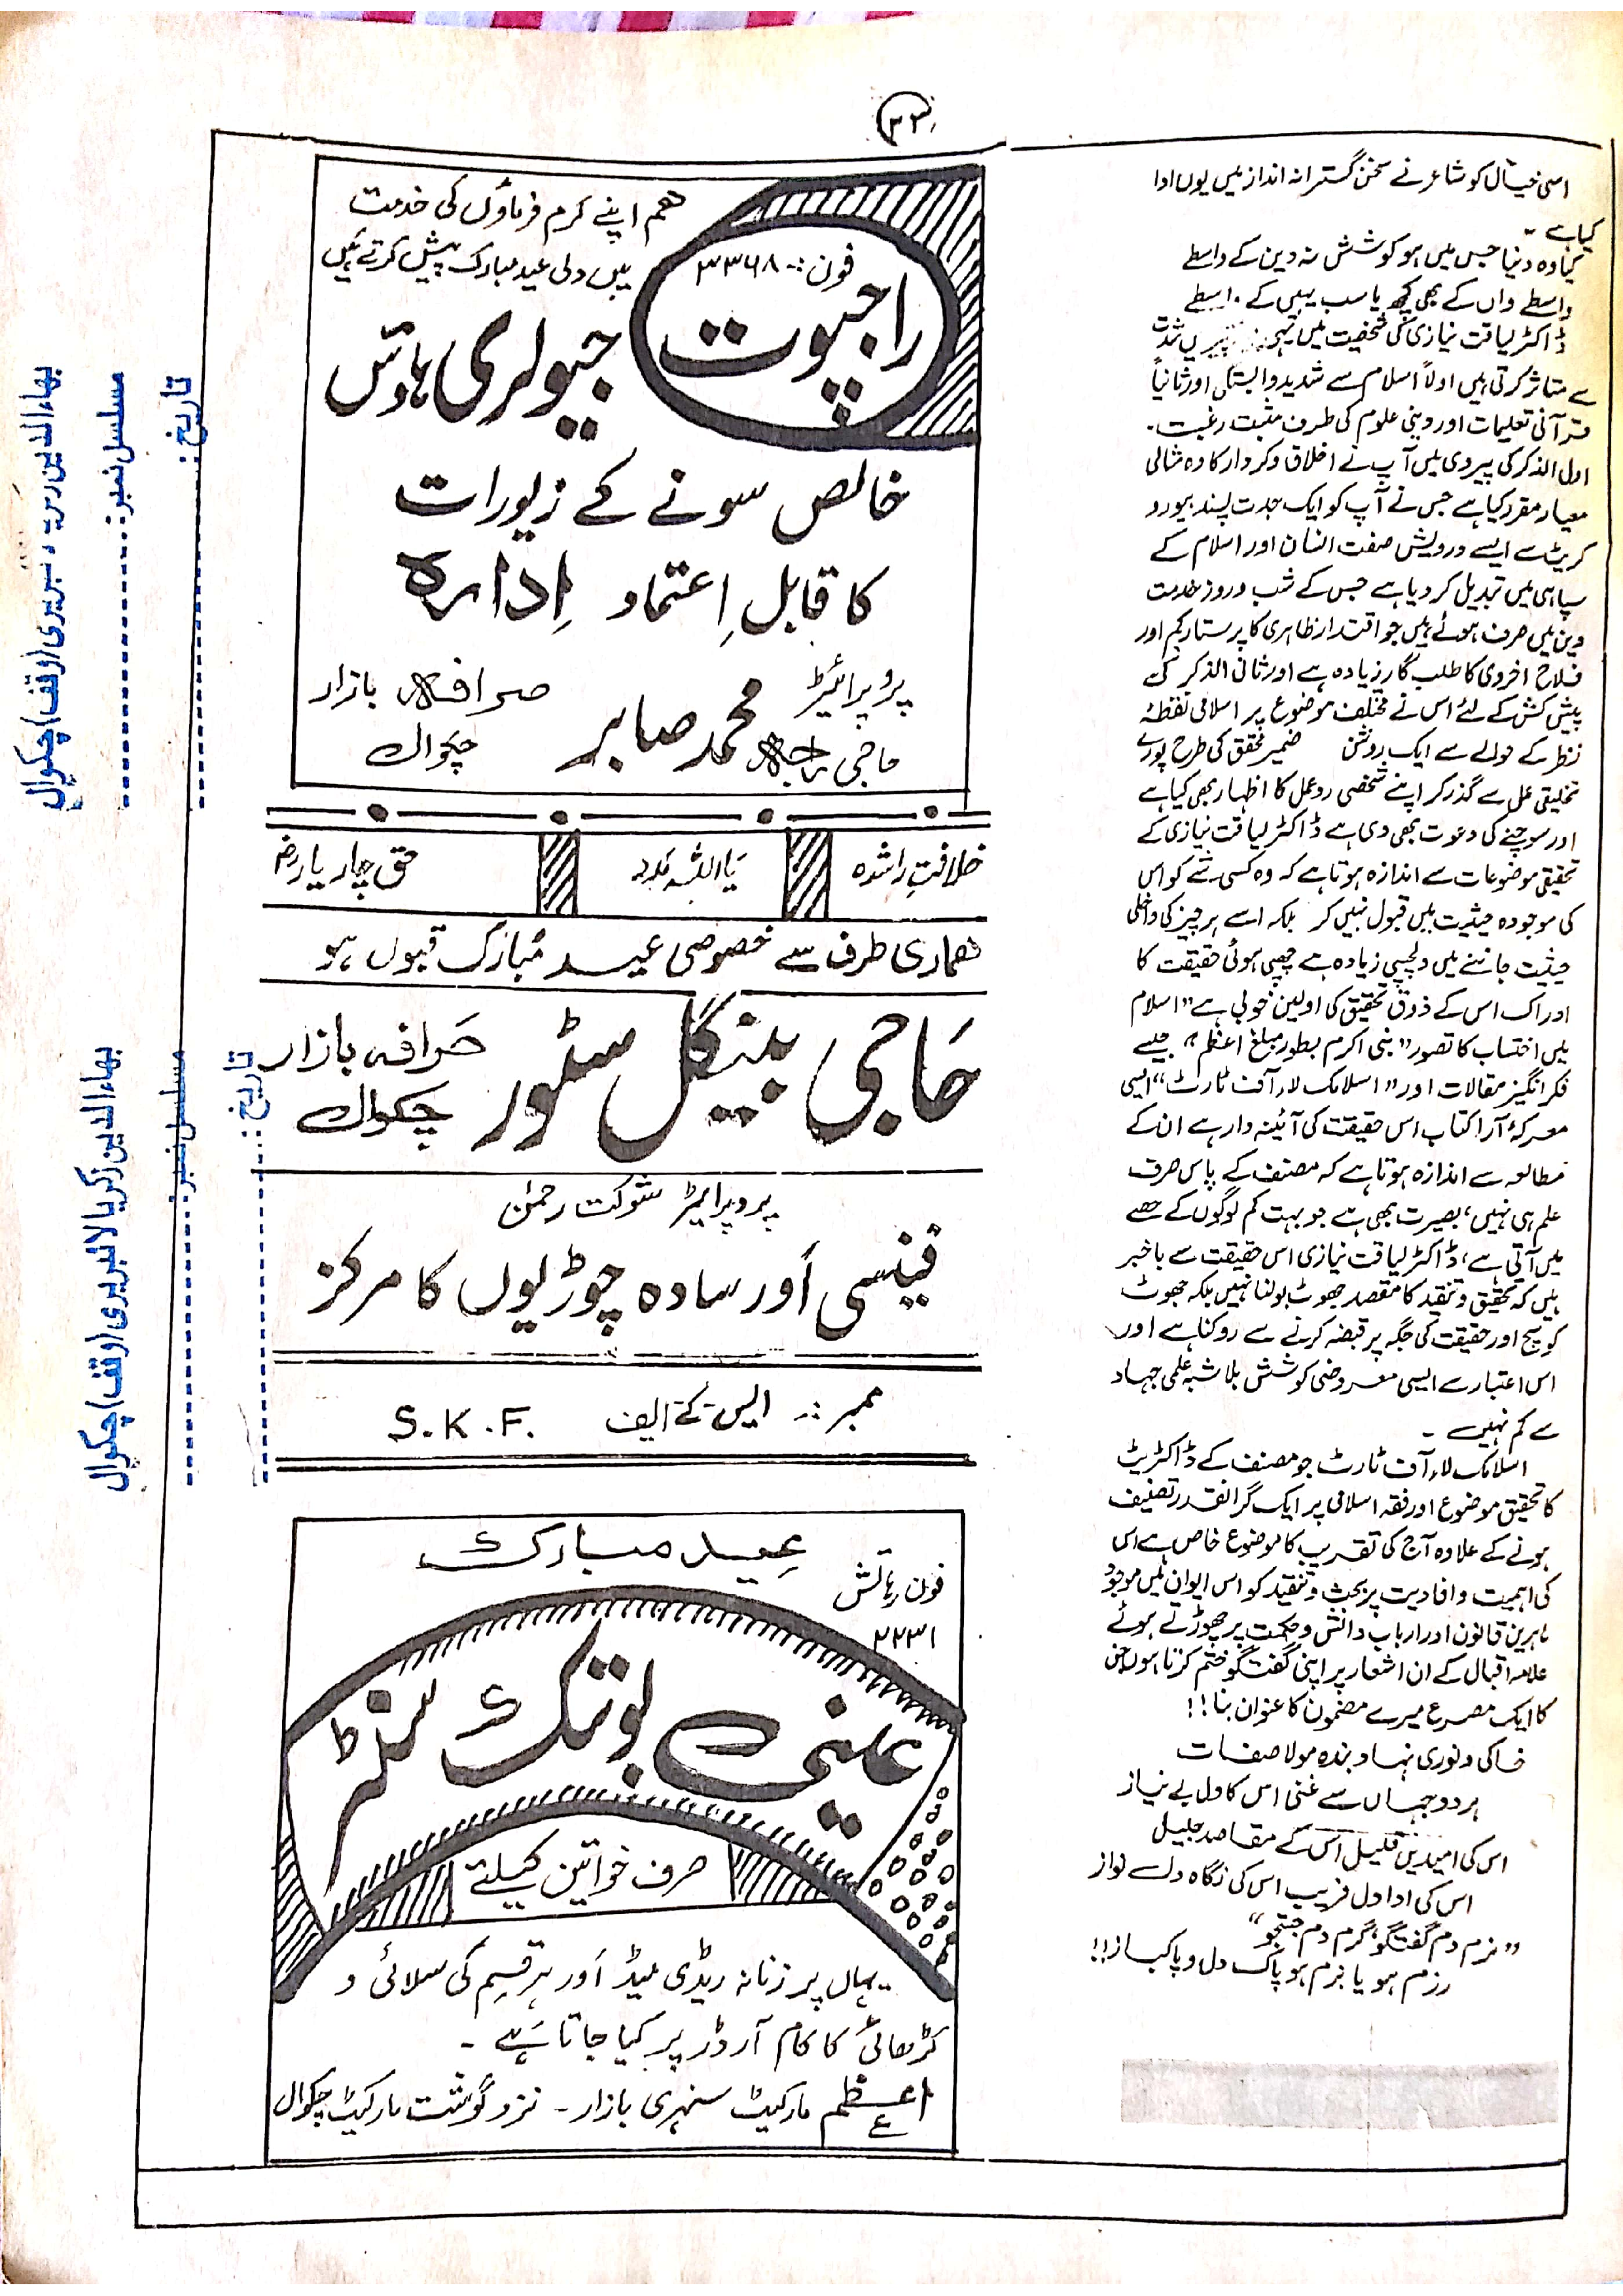 ۳۳
اسی خیال کو شاعر نے سخن گسترانہ انداز میں یوں ادا
کیا ہے ۔
کیا وہ دنیا جس میں ہو کوشش نہ دین کے واسطے
واسطے واں کے بھی کچھ یا سب یہیں کے واسطے
ڈاکٹر لیاقت نیازی کی شخصیت میں
سے متاثر کرتی ہیں اولاً اسلام سے شدید وابستگی اور ثانیاً
قرآنی تعلیمات اور دینی علوم کی طرف مثبت رغبت۔
اول الذکر کی پیروی میں آپ نے اخلاق و کردار کا وہ مثالی
معیار مقرر کیا ہے جس نے آپ کو ایک جدت پسند بیورو
کریٹ سے ایسے درویش صفت انسان اور اسلام کے
سپاہی میں تبدیل کر دیا ہے جس کے شب و روز خدمت
دین میں صرف ہوئے ہیں جو اقتدار ظاہری کا پرستار کم اور
فلاح اخروی کا طلب گار زیادہ ہے اور ثانی الذکر کی
پیش کش کے لئے اس نے مختلف موضوع پر اسلامی نقطۂ
نظر کے حوالے سے ایک روشن ضمیر محقق کی طرح پورے
تخلیقی عمل سے گذر کر اپنے شخصی ردعمل کا اظہار بھی کیا ہے
اور سوچنے کی دعوت بھی دی ہے ڈاکٹر لیاقت نیازی کے
تحقیقی موضوعات سے اندازہ ہوتا ہے کہ وہ کسی شے کو اس
کی موجودہ حیثیت میں قبول نہیں کر بلکہ اسے ہر چیز کی داخلی
حیثیت جاننے میں دلچسپی زیادہ ہے چھپی ہوئی حقیقت کا
ادراک اس کے ذوق تحقیق کی اولین خوبی ہے "اسلام
میں احتساب کا تصور" "نبی اکرم بطور مبلغ اعظم" جیسے
فکر انگیز مقالات اور "اسلامک لاء آف ٹارٹ" ایسی
معرکۂ آرا کتاب اس حقیقت کی آئینہ دار ہے ان کے
مطالعہ سے اندازہ ہوتا ہے کہ مصنف کے پاس صرف
علم ہی نہیں، بصیرت بھی ہے جو بہت کم لوگوں کے حصے
میں آتی ہے، ڈاکٹر لیاقت نیازی اس حقیقت سے باخبر
ہیں کہ تحقیق و تنقید کا مقصد جھوٹ بولنا نہیں بلکہ جھوٹ
کو سچ اور حقیقت کی جگہ پر قبضہ کرنے سے روکنا ہے اور
اس اعتبار سے ایسی معروضی کوشش بلاشبہ علمی جہاد
سے کم نہیں ۔
اسلامک لاء آف ٹارٹ جو مصنف کے ڈاکٹریٹ
کا تحقیق موضوع اور فقہ اسلامی پر ایک گرانقدر تصنیف
ہونے کے علاوہ آج کی تقریب کا موضوع خاص ہے اس
کی اہمیت و افادیت پر بحث و تنقید کو اس ایوان میں موجود
ماہرین قانون اور ارباب دانش و حکمت پر چھوڑتے ہوئے
علامہ اقبال کے ان اشعار پر اپنی گفتگو ختم کرتا ہوں جن
کا ایک مصرع میرے مضمون کا عنوان بنا!!
خاکی و نوری نہاد بندہ مولا صفات
ہر دو جہاں سے غنی اس کا دل بے نیاز
اس کی امیدیں قلیل اس کے مقاصد جلیل
اس کی ادا دل فریب اس کی نگاہ دل نواز
"نرم دم گفتگو، گرم دم جستجو"
رزم ہو یا بزم ہو پاک دل و پاکباز!!
ھم اپنے کرم فرماؤں کی خدمت
میں دلی عید مبارک پیش کرتے ہیں
فون :۔ ۳۳۶۸
راجپوت
جیولری ہاؤس
خالص سونے کے زیورات
کا قابلِ اِعتماد اِدارہ
پروپرائیٹر
حاجی راجہ محمد صابر
صرافہ بازار
چکوال
خلافتِ راشدہ
یا اللہ مدد
حق چار یار
ھماری طرف سے خصوصی عید مُبارک قبول ہو
حَاجی بینگل سٹور
صَرافہ بازار
چکوال
پروپرائیٹر شوکت رحمٰن
فینسی اَور سادہ چوڑیوں کا مرکز
ممبر :۔ ایس کے ایف S.K.F.
عید مبارک
فون رہائش
۲۲۳۱
عینی بوتیک سنٹر
صرف خواتین کیلئے
یہاں پر زنانہ ریڈی میڈ اَور ہر قسم کی سلائی و
کڑھائی کا کام آرڈر پر کیا جاتا ہَے ۔
اعظم مارکیٹ سنہری بازار ۔ نزد گوشت مارکیٹ چکوال
بھاءالدین زکریا لائبریری (وقف) چکوال
مسلسل نمبر:
تاریخ:
بھاءالدین زکریا لائبریری (وقف) چکوال
مسلسل نمبر:
تاریخ: